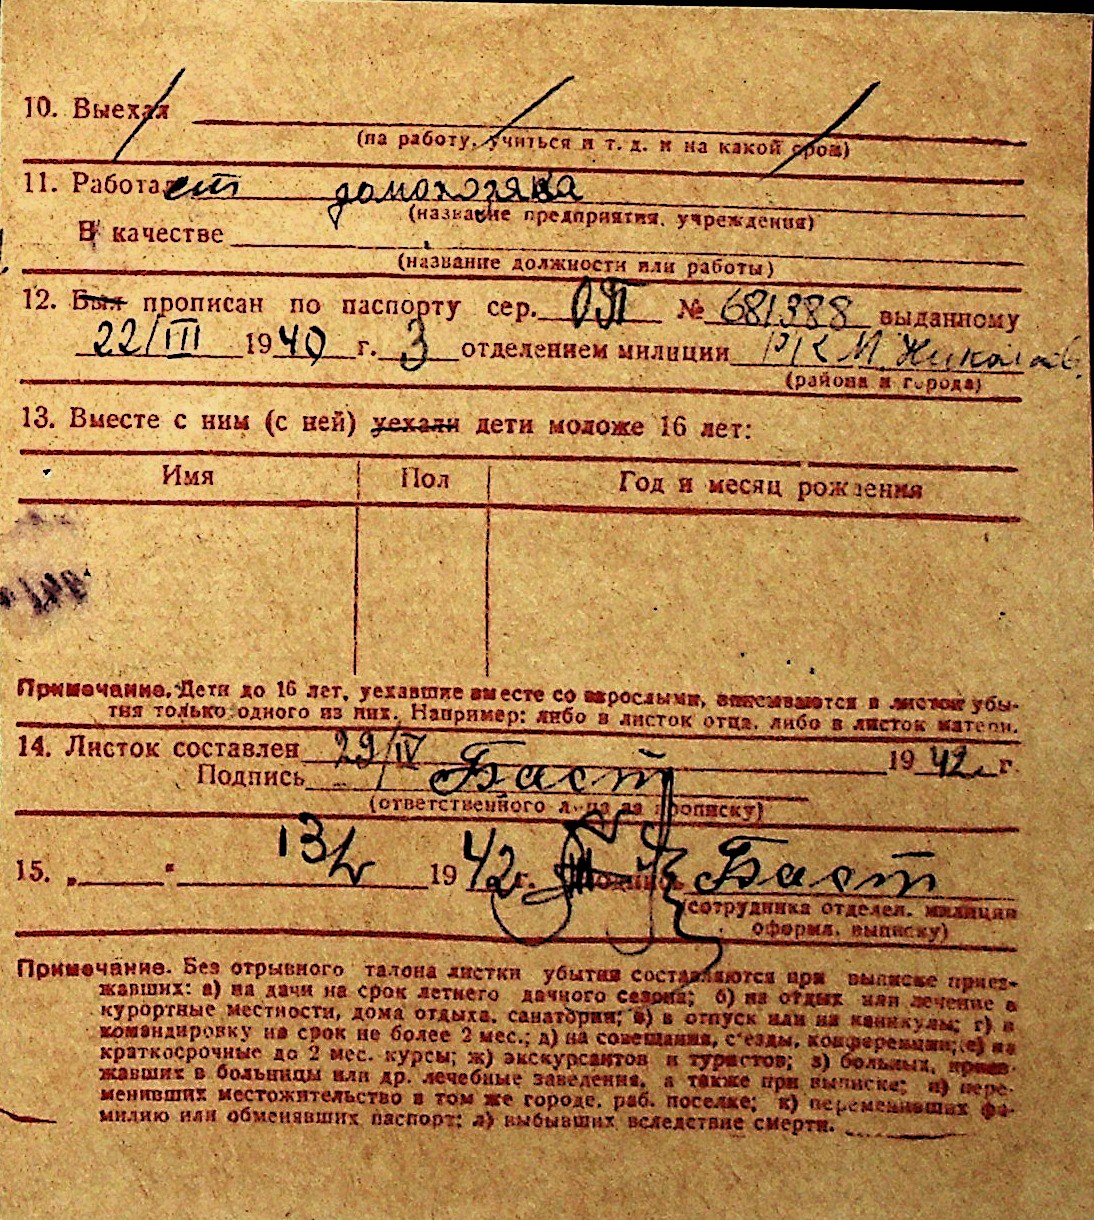 10. Выехал
(на работу, учиться и т. д. и на какой срок)
11. Работает домохозяйка
(название предприятия, учреждения)
В качестве
(название должности или работы)
12. Был прописан по паспорту сер. № 681388 выданному
22/III 1940 г. 3 отделением милиции РКМ
(района и города)
13. Вместе с ним (с ней) уехали дети моложе 16 лет:
Имя Пол Год и месяц рождения
Примечание. Дети до 16 лет, уехавшие вместе со взрослыми, вписываются в листок убы-
тия только одного из них. Например: либо в листок отца, либо в листок матери.
14. Листок составлен 29/IV 1942 г.
Подпись Баст
(ответственного лица за прописку)
15. „ " 13/V 1942 г. Подпись Баст
(сотрудника отделен. милиции
оформл. выписку)
Примечание. Без отрывного талона листки убытия составляются при выписке приез-
жавших: а) на дачи на срок летнего дачного сезона; б) на отдых или лечение в
курортные местности, дома отдыха, санатории; в) в отпуск или на каникулы; г) в
командировку на срок не более 2 мес.; д) на совещания, с'езды, конференции; е) на
краткосрочные до 2 мес. курсы; ж) экскурсантов и туристов; з) больных, приез-
жавших в больницы или др. лечебные заведения, а также при выписке; и) пере-
менивших местожительство в том же городе, раб. поселке; к) переменивших фа-
милию или обменявших паспорт; л) выбывших вследствие смерти.